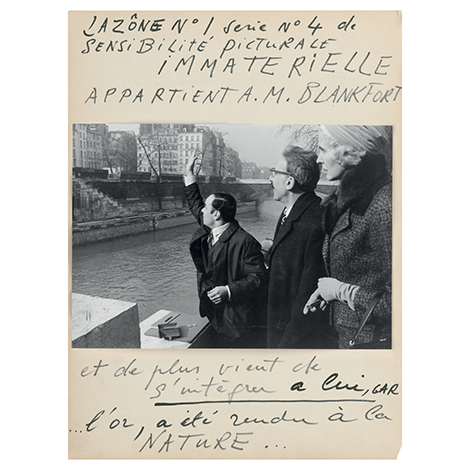 LA ZÔNE N°1 serie N°4 de
SENSIBILITÉ PICTURALE
IMMATERIELLE
APPARTIENT A. M. BLANKFORT
et de plus vient de
s'intégrer a lui, CAR
...l'or, a été rendu à la
NATURE ...